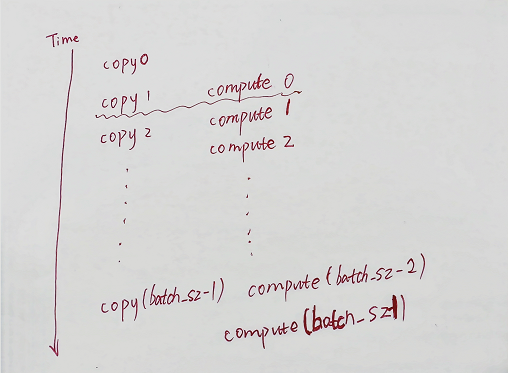 Time
copy0
copy 1 compute 0
compute 1
copy 2
compute 2
copy(batch_sz-1) compute(batch_sz-2)
compute(batch_sz-1)